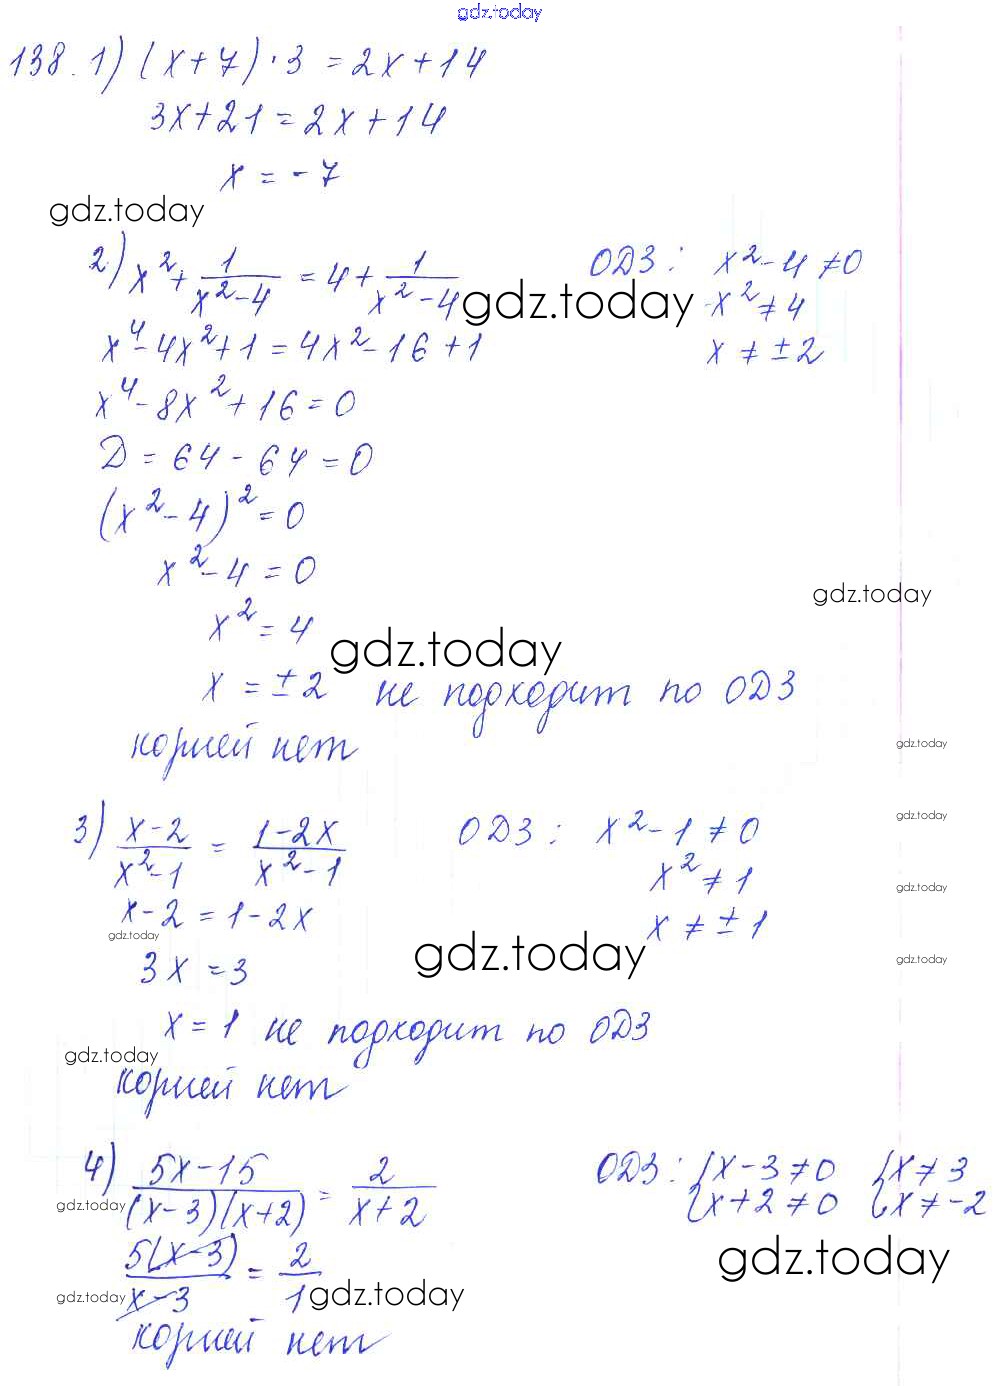 gdz.today
138. 1) (x+7)·3 = 2x+14
3x+21 = 2x+14
x = -7
gdz.today
2) x² + 1/(x²-4) = 4 + 1/(x²-4) ОДЗ: x²-4 ≠ 0
gdz.today
x² ≠ 4
x⁴-4x²+1 = 4x²-16+1 x ≠ ±2
x⁴-8x²+16 = 0
D = 64-64 = 0
(x²-4)² = 0
x²-4 = 0
gdz.today
x² = 4
gdz.today
x = ±2 не подходит по ОДЗ
корней нет
gdz.today
gdz.today
3) (x-2)/(x²-1) = (1-2x)/(x²-1) ОДЗ: x²-1 ≠ 0
x² ≠ 1
gdz.today
x-2 = 1-2x x ≠ ±1
gdz.today
gdz.today
gdz.today
3x = 3
x = 1 не подходит по ОДЗ
gdz.today
корней нет
4) (5x-15)/((x-3)(x+2)) = 2/(x+2) ОДЗ: {x-3≠0 {x≠3
{x+2≠0 {x≠-2
gdz.today
gdz.today
5(x-3)/(x-3) = 2/1
gdz.today
gdz.today
корней нет